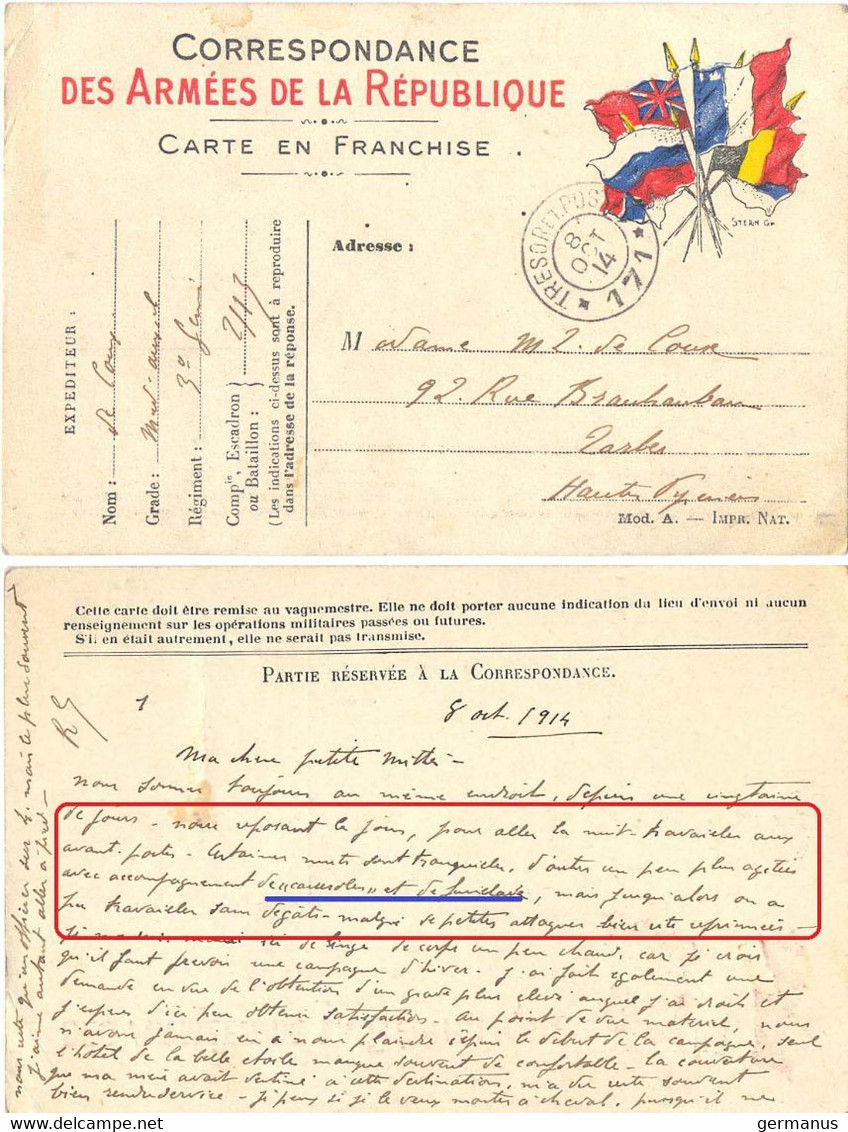 CORRESPONDANCE
DES ARMÉES DE LA RÉPUBLIQUE
CARTE EN FRANCHISE.
STERN Gr
TRESOR ET POSTES
8
OCT
14
* 171 *
EXPÉDITEUR :
Nom : de
Grade :
Régiment : 3e Génie
Compie, Escadron
ou Bataillon :
(Les indications ci-dessus sont à reproduire
dans l'adresse de la réponse.
Adresse :
Madame M L. de
92. Rue Brauhauban
Tarbes
Hautes Pyrénées
Mod. A. — IMPR. NAT.
Cette carte doit être remise au vaguemestre. Elle ne doit porter aucune indication du lieu d'envoi ni aucun
renseignement sur les opérations militaires passées ou futures.
S'il en était autrement, elle ne serait pas transmise.
PARTIE RÉSERVÉE À LA CORRESPONDANCE.
1
8 oct. 1914
Ma chere petite
nous sommes toujours au même endroit, depuis une vingtaine
de jours - nous reposant le jour, pour aller la nuit travailler aux
avant-postes - Certaines nuits sont tranquilles, d'autres un peu plus agitées
avec accompagnement de "casseroles" et de, mais jusqu'alors on a
pu travailler sans dégâts - malgré de petites attaques bien vite reprimées -
ici de linge de corps un peu chaud, car je crois
qu'il faut prevoir une campagne d'hiver. J'ai fait également une
demande en vue de l'obtention d'un grade plus elevé auquel j'ai droit et
j'espere d'ici peu obtenir satisfaction. Au point de vue materiel, nous
n'avons jamais eu a nous plaindre depuis le debut de la campagne, seul
l'hôtel de la belle etoile manque souvent de confortable - la couverture
que ma avait destiné a cette destination, m'a souvent
bien rendu service - Je peux si je le veux monter à cheval, puisqu'il ne
nous reste qu'un officier sur 4. mais le plus souvent
j'aime autant aller à pied -
germanus